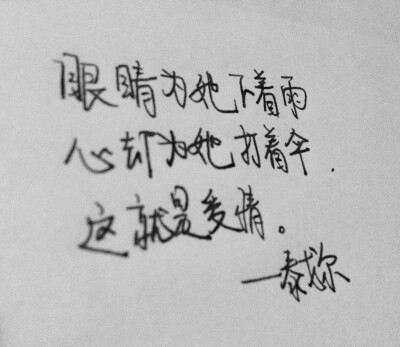 眼睛为她下着雨
心却为她打着伞.
这就是爱情。
—泰戈尔